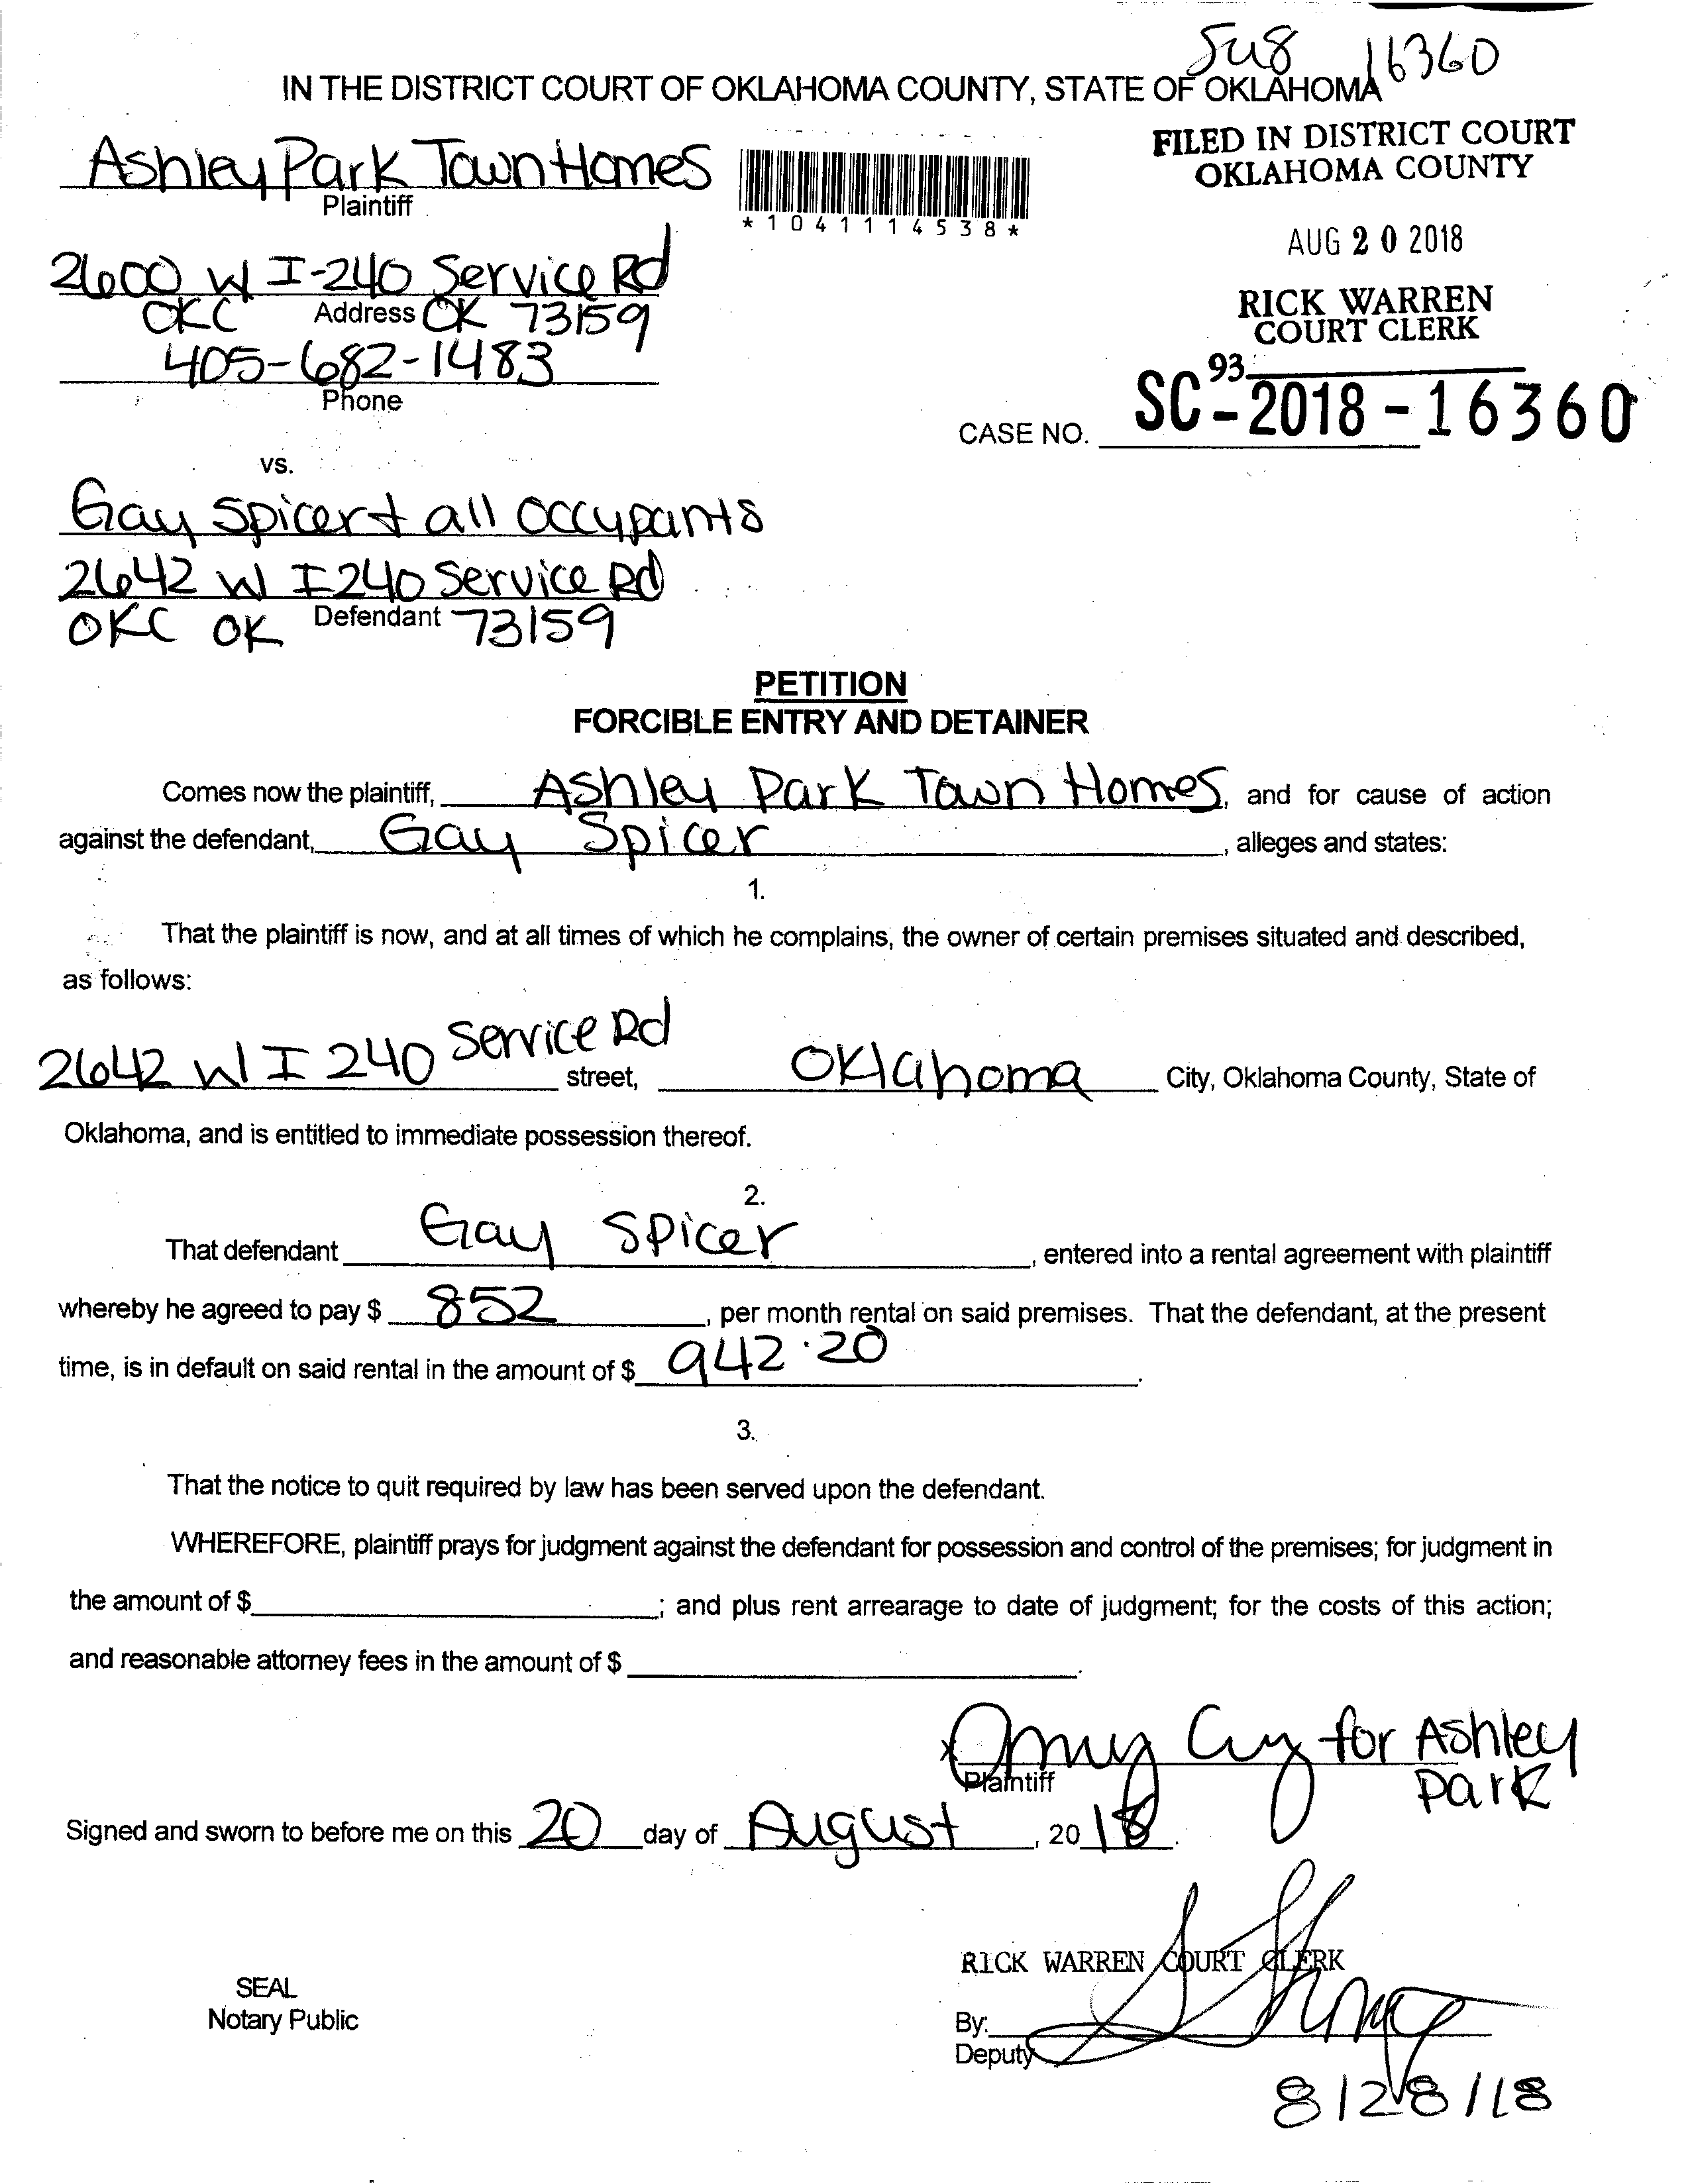 16360
IN THE DISTRICT COURT OF OKLAHOMA COUNTY, STATE OF OKLAHOMA
Ashley Park Town Homes
Plaintiff
*1041114538*
FILED IN DISTRICT COURT
OKLAHOMA COUNTY
AUG 20 2018
RICK WARREN
COURT CLERK
93
2600 W I-240 Service Rd
OKC Address OK 73159
405-682-1483
Phone
CASE NO. SC-2018-16360
vs.
Gay Spicer + all occupants
2642 W I240 Service Rd
OKC OK Defendant 73159
PETITION
FORCIBLE ENTRY AND DETAINER
Comes now the plaintiff, Ashley Park Town Homes, and for cause of action
against the defendant, Gay Spicer, alleges and states:
1.
That the plaintiff is now, and at all times of which he complains, the owner of certain premises situated and described,
as follows:
2642 W I 240 Service Rd street, Oklahoma City, Oklahoma County, State of
Oklahoma, and is entitled to immediate possession thereof.
2.
That defendant Gay Spicer, entered into a rental agreement with plaintiff
whereby he agreed to pay $ 852, per month rental on said premises. That the defendant, at the present
time, is in default on said rental in the amount of $ 942.20.
3.
That the notice to quit required by law has been served upon the defendant.
WHEREFORE, plaintiff prays for judgment against the defendant for possession and control of the premises; for judgment in
the amount of $ ; and plus rent arrearage to date of judgment; for the costs of this action;
and reasonable attorney fees in the amount of $ .
x Amy for Ashley
Plaintiff Park
Signed and sworn to before me on this 20 day of August, 2018.
RICK WARREN COURT CLERK
SEAL
Notary Public
By:
Deputy
8/28/18